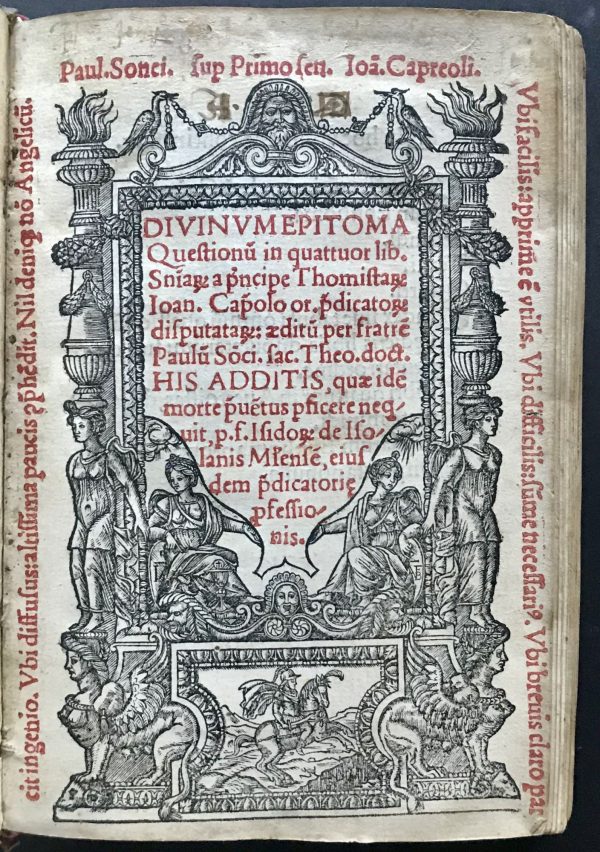 Paul. Sonci. sup Primo sen. Ioā. Capreoli.
DIVINVM EPITOMA
Questionū in quattuor lib.
Sniaꝝ a p̄ncipe Thomistaꝝ
Ioan. Cap̄olo or. p̄dicatoꝝ
disputataꝝ: æditū per fratrē
Paulū Sōci. sac. Theo. doct.
HIS ADDITIS, quæ idē
morte p̄uētus pficere neq-
uit, p. f. Isidoꝝ de Iso-
lanis Mlēnsē, eius
dem p̄dicatorię
ꝓfessio-
nis.
Vbi facilis: apprime ē vtilis. Vbi difficilis: sūme necessariꝰ. Vbi breuis claro par
cit ingenio. Vbi diffusus: altissima paucis ꝓphēdit. Nil deniqꝫ nō Angelicū.